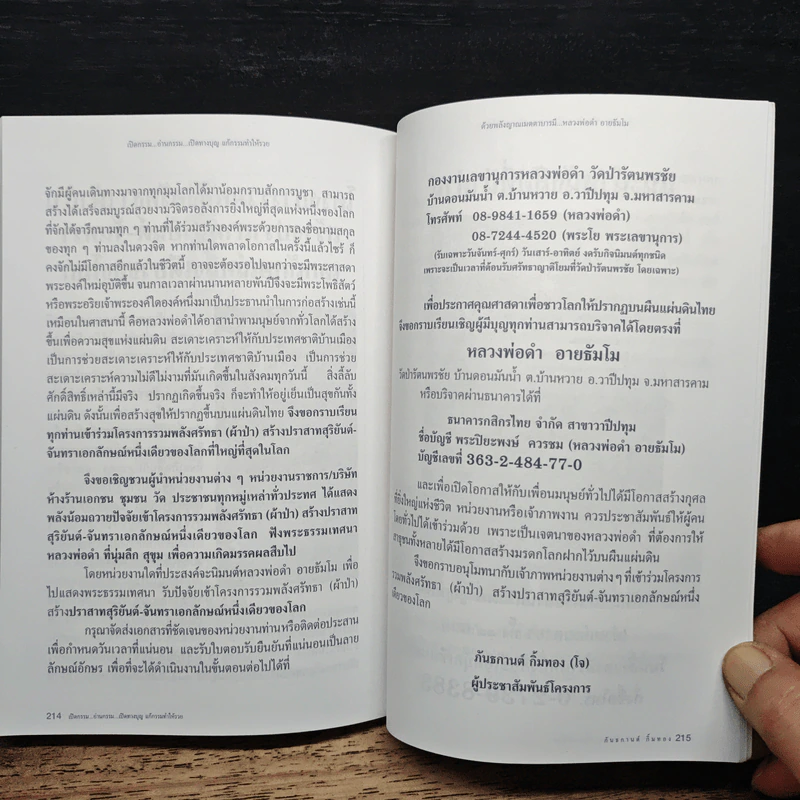 เปิดกรรม...อ่านกรรม...เปิดทางบุญ แก้กรรมทำให้รวย
จักมีผู้คนเดินทางมาจากทุกมุมโลกได้มาน้อมกราบสักการบูชา สามารถ
สร้างได้เสร็จสมบูรณ์สวยงามวิจิตรอลังการยิ่งใหญ่ที่สุดแห่งหนึ่งของโลก
ที่จักได้จารึกนามทุก ๆ ท่านที่ได้ร่วมสร้างองค์พระด้วยการลงชื่อนามสกุล
ของทุก ๆ ท่านลงในดวงจิต หากท่านใดพลาดโอกาสในครั้งนี้แล้วไซร้ ก็
คงจักไม่มีโอกาสอีกแล้วในชีวิตนี้ อาจจะต้องรอไปจนกว่าจะมีพระศาสดา
พระองค์ใหม่อุบัติขึ้น จนกาลเวลาผ่านนานหลายพันปีจึงจะมีพระโพธิสัตว์
หรือพระอริยเจ้าพระองค์ใดองค์หนึ่งมาเป็นประธานนำในการก่อสร้างเช่นนี้
เหมือนในศาสนานี้ คือหลวงพ่อดำได้อาสานำพามนุษย์จากทั่วโลกได้สร้าง
ขึ้นเพื่อความสุขแห่งแผ่นดิน สะเดาะเคราะห์ให้กับประเทศชาติบ้านเมือง
เป็นการช่วยสะเดาะเคราะห์ให้กับประเทศชาติบ้านเมือง เป็นการช่วย
สะเดาะเคราะห์ความไม่ดีไม่งามที่มันเกิดขึ้นในสังคมทุกวันนี้ สิ่งลี้ลับ
ศักดิ์สิทธิ์เหล่านี้มีจริง ปรากฏเกิดขึ้นจริง ก็จะทำให้อยู่เย็นเป็นสุขกันทั้ง
แผ่นดิน ดังนั้นเพื่อสร้างสุขให้ปรากฏขึ้นบนแผ่นดินไทย จึงขอกราบเรียน
ทุกท่านเข้าร่วมโครงการรวมพลังศรัทธา (ผ้าป่า) สร้างปราสาทสุริยันต์-
จันทราเอกลักษณ์หนึ่งเดียวของโลกที่ใหญ่ที่สุดในโลก
จึงขอเชิญชวนผู้นำหน่วยงานต่าง ๆ หน่วยงานราชการ/บริษัท
ห้างร้านเอกชน ชุมชน วัด ประชาชนทุกหมู่เหล่าทั่วประเทศ ได้แสดง
พลังน้อมถวายปัจจัยเข้าโครงการรวมพลังศรัทธา (ผ้าป่า) สร้างปราสาท
สุริยันต์-จันทราเอกลักษณ์หนึ่งเดียวของโลก ฟังพระธรรมเทศนา
หลวงพ่อดำ ที่นุ่มลึก สุขุม เพื่อความเกิดมรรคผลสืบไป
โดยหน่วยงานใดที่ประสงค์จะนิมนต์หลวงพ่อดำ อายธัมโม เพื่อ
ไปแสดงพระธรรมเทศนา รับปัจจัยเข้าโครงการรวมพลังศรัทธา (ผ้าป่า)
สร้างปราสาทสุริยันต์-จันทราเอกลักษณ์หนึ่งเดียวของโลก
กรุณาจัดส่งเอกสารที่ชัดเจนของหน่วยงานท่านหรือติดต่อประสาน
เพื่อกำหนดวันเวลาที่แน่นอน และรับใบตอบรับยืนยันที่แน่นอนเป็นลาย
ลักษณ์อักษร เพื่อที่จะได้ดำเนินงานในขั้นตอนต่อไปได้ที่
214 เปิดกรรม...อ่านกรรม...เปิดทางบุญ แก้กรรมทำให้รวย
ด้วยพลังญาณเมตตาบารมี...หลวงพ่อดำ อายธัมโม
กองงานเลขานุการหลวงพ่อดำ วัดป่ารัตนพรชัย
บ้านดอนมันน้ำ ต.บ้านหวาย อ.วาปีปทุม จ.มหาสารคาม
โทรศัพท์ 08-9841-1659 (หลวงพ่อดำ)
08-7244-4520 (พระโย พระเลขานุการ)
(รับเฉพาะวันจันทร์-ศุกร์) วันเสาร์-อาทิตย์ งดรับกิจนิมนต์ทุกชนิด
เพราะจะเป็นเวลาที่ต้อนรับศรัทธาญาติโยมที่วัดป่ารัตนพรชัย โดยเฉพาะ)
เพื่อประกาศคุณศาสดาเพื่อชาวโลกให้ปรากฏบนผืนแผ่นดินไทย
จึงขอกราบเรียนเชิญผู้มีบุญทุกท่านสามารถบริจาคได้โดยตรงที่
หลวงพ่อดำ อายธัมโม
วัดป่ารัตนพรชัย บ้านดอนมันน้ำ ต.บ้านหวาย อ.วาปีปทุม จ.มหาสารคาม
หรือบริจาคผ่านธนาคารได้ที่
ธนาคารกสิกรไทย จำกัด สาขาวาปีปทุม
ชื่อบัญชี พระปิยะพงษ์ ควรชม (หลวงพ่อดำ อายธัมโม)
บัญชีเลขที่ 363-2-484-77-0
และเพื่อเปิดโอกาสให้กับเพื่อนมนุษย์ทั่วไปได้มีโอกาสสร้างกุศล
ที่ยิ่งใหญ่แห่งชีวิต หน่วยงานหรือเจ้าภาพงาน ควรประชาสัมพันธ์ให้ผู้คน
โดยทั่วไปได้เข้าร่วมด้วย เพราะเป็นเจตนาของหลวงพ่อดำ ที่ต้องการให้
สาธุชนทั้งหลายได้มีโอกาสสร้างมรดกโลกฝากไว้บนผืนแผ่นดิน
จึงขอกราบอนุโมทนากับเจ้าภาพหน่วยงานต่างๆ ที่เข้าร่วมโครงการ
รวมพลังศรัทธา (ผ้าป่า) สร้างปราสาทสุริยันต์-จันทราเอกลักษณ์หนึ่ง
เดียวของโลก
ภันธกานต์ กิ้มทอง (โจ)
ผู้ประชาสัมพันธ์โครงการ
ภันธกานต์ กิ้มทอง 215